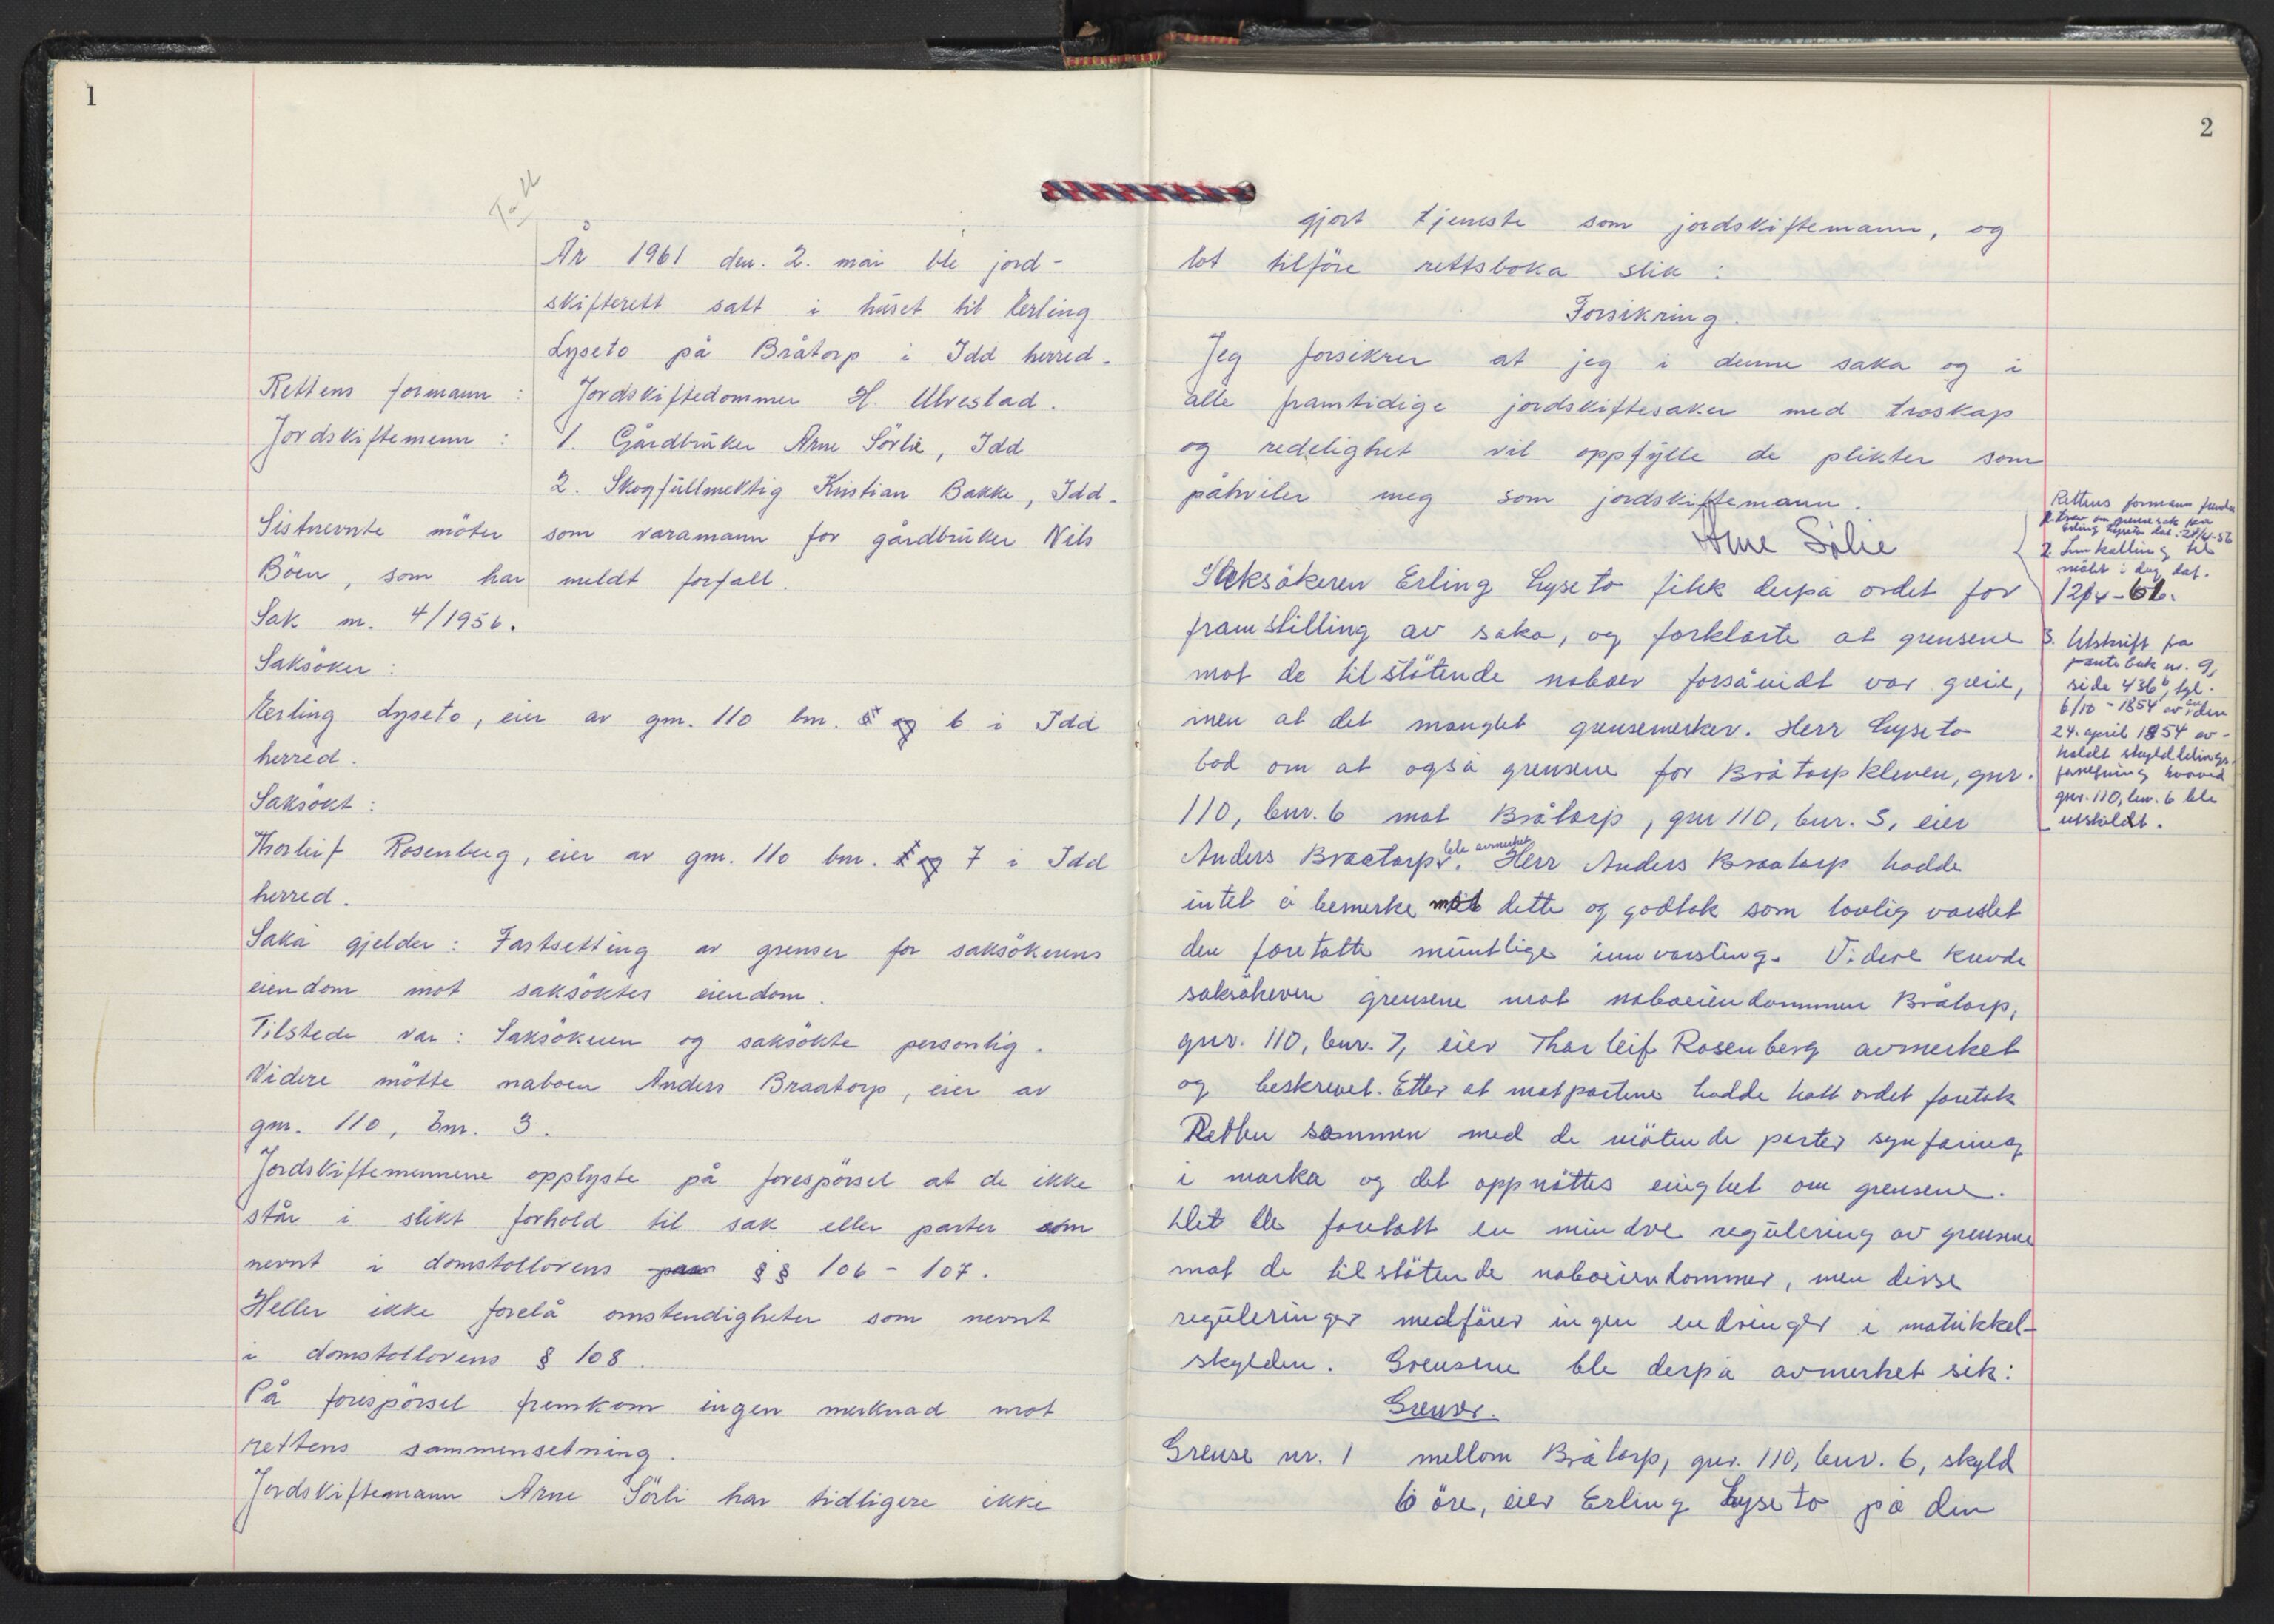 1
År 1961 den. 2. mai ble jord-
skifterett satt i huset til Erling
Lyseto på Bråtorp i Idd herred.
Rettens formann : Jordskiftedommer H. Ulvestad.
Jordskiftemenn : 1. Gårdbruker Arne Sörlie, Idd
2. Skogfullmektig Kristian Bakke, Idd.
Sistnevnte möter som varamann for gårdbruker Nils
Böen, som har meldt forfall.
Sak nr. 4/1956.
Saksöker :
Erling Lyseto, eier av gnr. 110 bnr. 6 i Idd
herred.
Saksökt :
Thorleif Rosenberg, eier av gnr. 110 bnr. 7 i Idd
herred.
Saka gjelder : Fastsetting av grenser for saksökerens
eiendom mot saksöktes eiendom.
Tilstede var : Saksökeren og saksökte personlig.
Videre mötte naboen Anders Braatorp, eier av
gnr. 110, bnr. 3.
Jordskiftemennene opplyste på forespörsel at de ikke
står i slikt forhold til sak eller parter som
nevnt i domstollovens §§ 106 - 107.
Heller ikke forelå omstendigheter som nevnt
i domstollovens § 108.
På forespörsel fremkom ingen merknad mot
rettens sammensetning.
Jordskiftemann Arne Sörli har tidligere ikke
2
gjort tjeneste som jordskiftemann, og
lot tilföre rettsboka slik :
Forsikring.
Jeg forsikrer at jeg i denne saka og i
alle framtidige jordskiftesaker med troskap
og redelighet vil oppfylle de plikter som
påhviler meg som jordskiftemann.
Arne Sölie
Saksökeren Erling Lyseto fikk derpå ordet for
framstilling av saka, og forklarte at grensene
mot de tilstötende naboer forsåvidt var greie,
men at det manglet grensemerker. Herr Lyseto
bad om at også grensene for Bråtorpkleven, gnr.
110, bnr. 6 mot Bråtorp, gnr 110, bnr. 3, eier
Anders Braatorp ble avmerket. Herr Anders Braatorp hadde
intet å bemerke mot dette og godtok som lovlig varslet
den foretatte muntlige innvarsling. Videre krevde
saksökeren grensene mot naboeiendommen Bråtorp,
gnr. 110, bnr. 7, eier Thorleif Rosenberg avmerket
og beskrevet. Etter at motpartene hadde hatt ordet foretok
Retten sammen med de mötende parter synfaring
i marka og det oppnåttes enighet om grensene.
Det ble foretatt en mindre regulering av grensene
mot de tilstötende naboeiendommer, men disse
reguleringer medförer ingen endringer i matrikkel-
skylden. Grensene ble derpå avmerket slik:
Grenser.
Grense nr. 1 mellom Bråtorp, gnr. 110, bnr. 6, skyld
6 öre, eier Erling Lyseto på den
Rettens formann
1. Krav om grensesak fra
Erling Lyseto dat. 28/4-56
2. Innkalling til
mötet i dag dat.
12/4-61.
3. Utskrift fra
pantebok nr. 9,
side 436b, tgl.
6/10 - 1854 av en den
24. april 1854 av-
holdt skylddelings-
forretning hvorved
gnr. 110, bnr. 6 ble
utskildt.